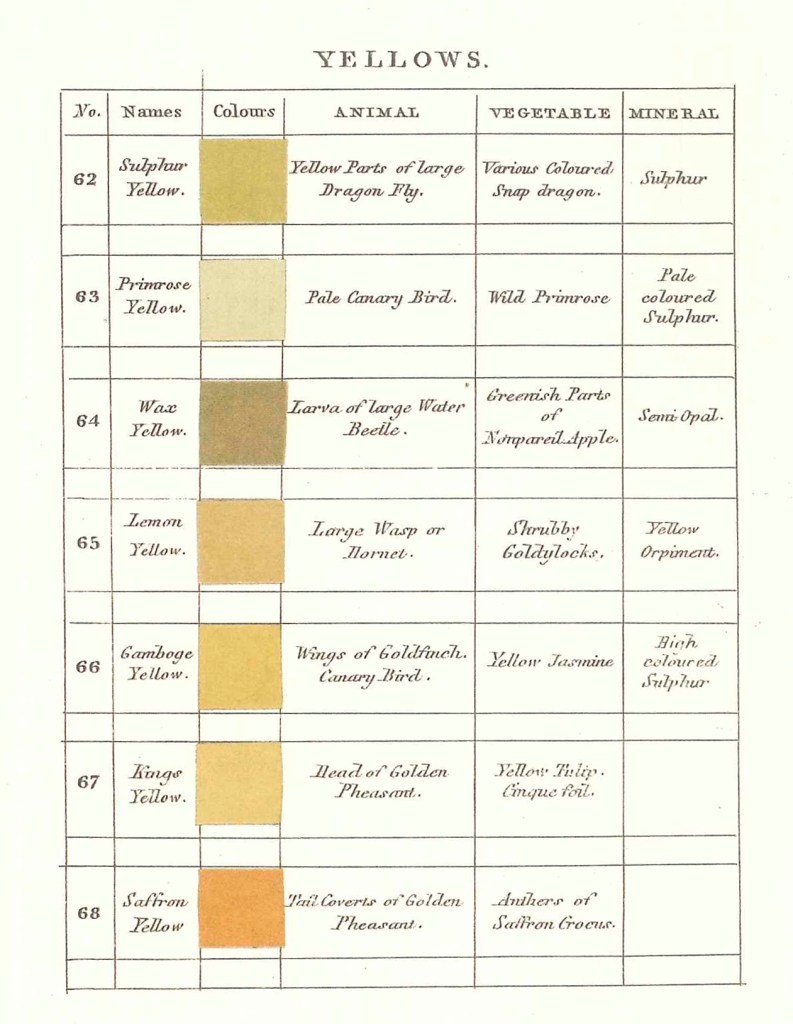 YELLOWS.
No. Names Colours ANIMAL VEGETABLE MINERAL
62
Sulphur
Yellow.
Yellow Parts of large
Dragon Fly.
Various Coloured
Snap dragon.
Sulphur
63
Primrose
Yellow.
Pale Canary Bird.
Wild Primrose
Pale
coloured
Sulphur.
64
Wax
Yellow.
Larva of large Water
Beetle.
Greenish Parts
of
Nonpareil Apple.
Semi Opal.
65
Lemon
Yellow.
Large Wasp or
Hornet.
Shrubby
Goldylocks.
Yellow
Orpiment.
66
Gamboge
Yellow.
Wings of Goldfinch.
Canary Bird.
Yellow Jasmine
High
coloured
Sulphur
67
Kings
Yellow.
Head of Golden
Pheasant.
Yellow Tulip.
Cinque foil.
68
Saffron
Yellow
Tail Coverts of Golden
Pheasant.
Anthers of
Saffron Crocus.